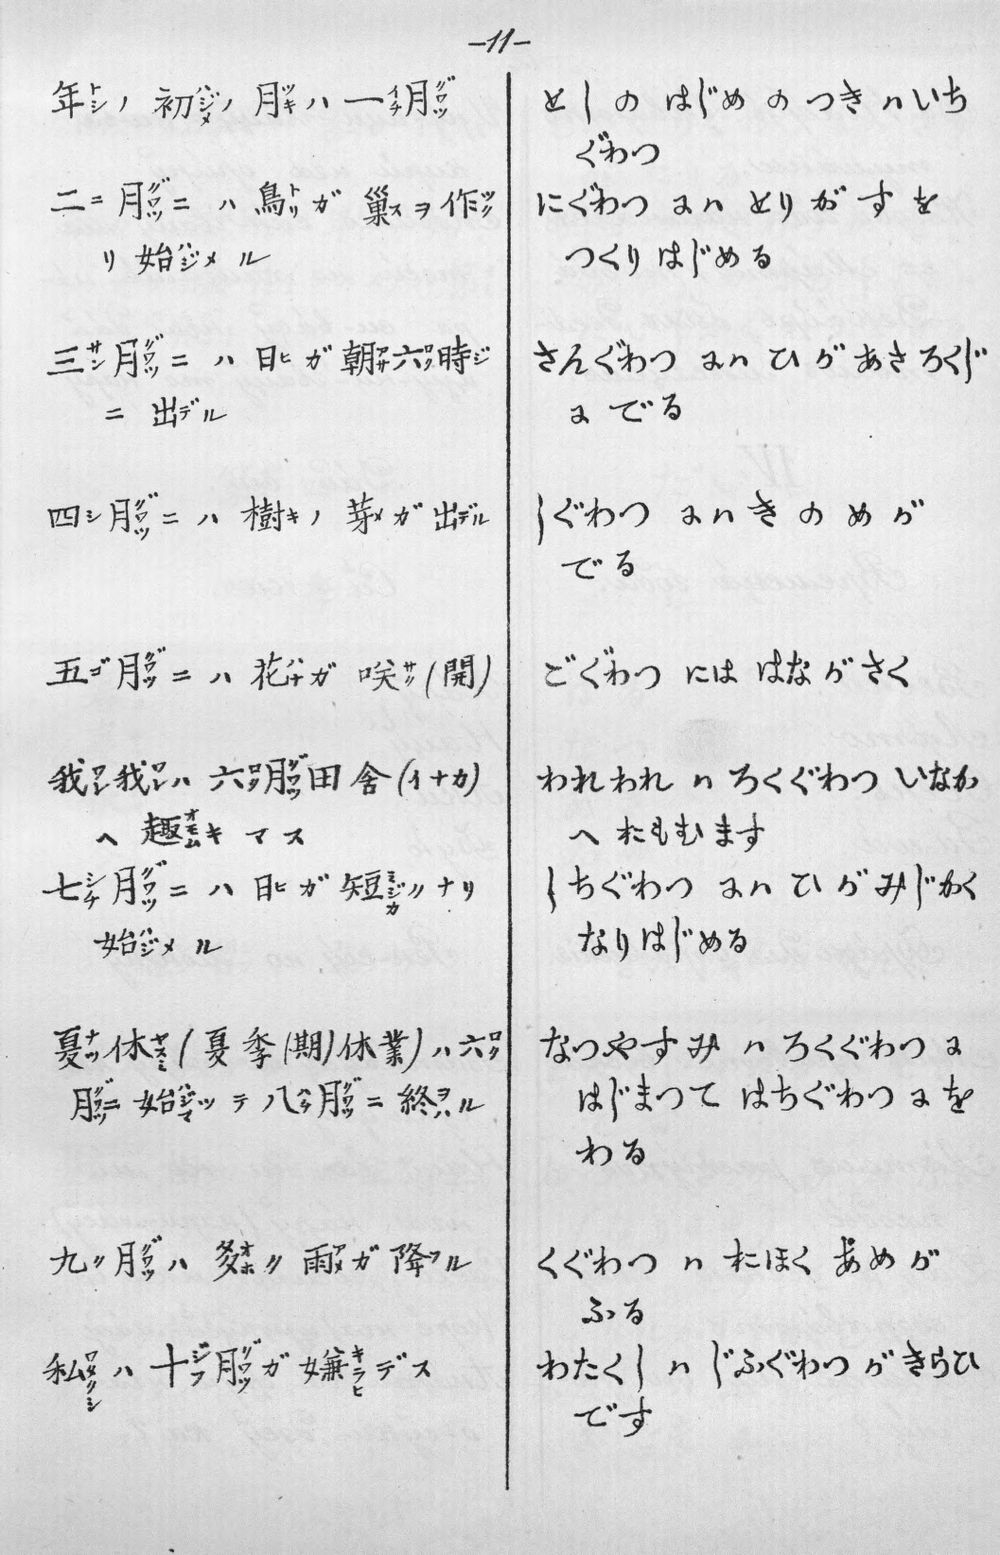 -11-
年トシノ 初ハジメノ 月ツキハ 一イチ月グワツ
二ニ月グワツニハ 鳥トリガ 巣スヲ 作ツク
リ 始ハジメル
三サン月グワツニハ 日ヒガ 朝アサ六ロク時ジ
ニ 出デル
四シ月グワツニハ 樹キノ 芽メガ 出デル
五ゴ月グワツニハ 花ハナガ 咲サク(開)
我ワレ我ワレハ 六ロク月グワツ田舎(イナカ)
ヘ 趣オモムキマス
七シチ月グワツニハ 日ヒガ 短ミジカクナリ
始ハジメル
夏ナツ休ヤスミ(夏季(期)休業)ハ六ロク
月グワツニ 始ハジマツテ 八ハチ月グワツニ 終ヲハル
九ク月グワツハ 多オホク 雨アメガ 降フル
私ワタクシハ 十ジフ月グワツガ 嫌キラヒデス
としの はじめの つきは いち
ぐわつ
にぐわつ には とりが すを
つくりはじめる
さんぐわつ には ひが あさ ろくじ
に でる
しぐわつ には きの めが
でる
ごぐわつ には はなが さく
われわれは ろくぐわつ いなか
へ おもむます
しちぐわつ には ひが みじかく
なりはじめる
なつやすみは ろくぐわつに
はじまつて はちぐわつに を
わる
くぐわつは おほく あめが
ふる
わたくしは じふぐわつが きらひ
です